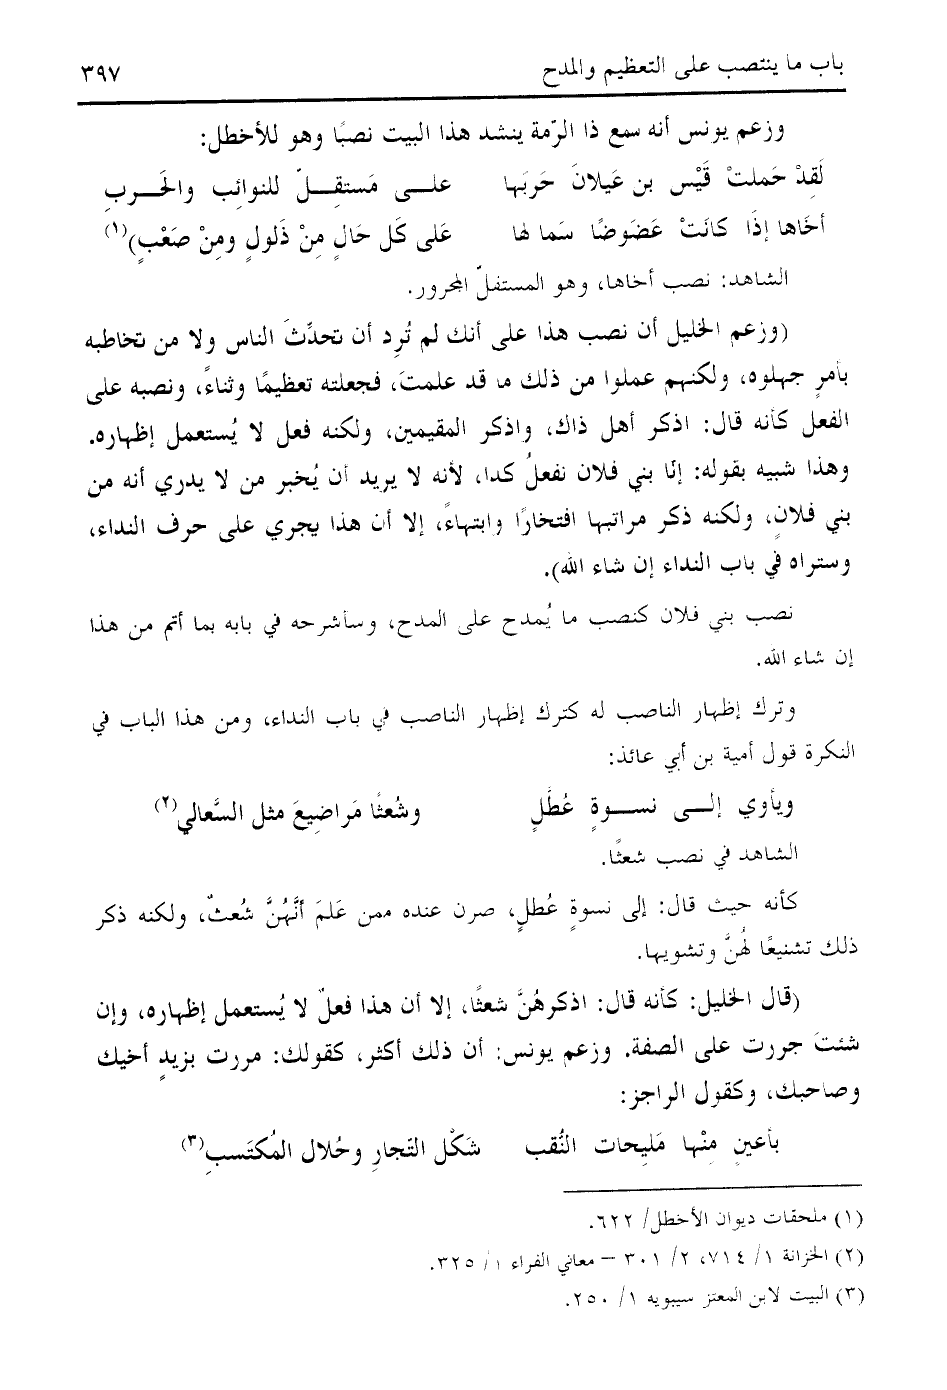 باب ما ينتصب على التعظيم والمدح ٣٩٧
وزعم يونس أنه سمع ذا الرّمة ينشد هذا البيت نصبًا وهو للأخطل:
لَقِدْ حَملتْ قَيْس بن عَيلانَ حَربَها علـى مَستقِـلّ للنوائب والحَـربِ
أخَاها إذَا كانَتْ عَضَوضًا سَما لها عَلى كَل حَالٍ مِنْ ذَلولٍ ومِنْ صَعْبٍ)(١)
الشاهد: نصب أخاها، وهو المستفلّ المجرور.
(وزعم الخليل أن نصب هذا على أنك لم تُرِد أن تحدِّثَ الناس ولا من تخاطبه
بأمرٍ جهلوه، ولكنهم عملوا من ذلك ما قد علمتَ، فجعلته تعظيمًا وثناءً، ونصبه على
الفعل كأنه قال: اذكر أهل ذاك، واذكر المقيمين، ولكنه فعل لا يُستعمل إظهاره.
وهذا شبيه بقوله: إنّا بني فلان نفعلُ كدا، لأنه لا يريد أن يُخبر من لا يدري أنه من
بني فلانٍ، ولكنه ذكر مراتبها افتخارًا وابتهاءً، إلا أن هذا يجري على حرف النداء،
وستراه في باب النداء إن شاء الله).
نصب بني فلان كنصب ما يُمدح على المدح، وسأشرحه في بابه بما أتم من هذا
إن شاء الله.
وترك إظهار الناصب له كترك إظهار الناصب في باب النداء، ومن هذا الباب في
النكرة قول أمية بن أبي عائذ:
ويأوي إلـى نسـوةٍ عُطَلٍ وشُعثًا مَراضِيعَ مثل السَّعالي(٢)
الشاهد في نصب شعثًا.
كأنه حيث قال: إلى نسوةٍ عُطلٍ، صرن عنده ممن عَلمَ أنَّهُنَّ شُعثٌ، ولكنه ذكر
ذلك تشنيعًا لهُنَّ وتشويها.
(قال الخليل: كأنه قال: اذكرهُنَّ شعثًا، إلا أن هذا فعلٌ لا يُستعمل إظهاره، وإن
شئتَ جررت على الصفة. وزعم يونس: أن ذلك أكثر، كقولك: مررت بزيدٍ أخيك
وصاحبك، وكقول الراجز:
بأعينٍ مِنْها مَليحات النُّقب شَكْل التّجارِ وحُلال المُكتَسبِ(٣)
(١) ملحقات ديوان الأخطل/ ٦٢٢.
(٢) الخزانة ١/ ٧١٤، ٢/ ٣٠١ – معاني الفراء ١/ ٣٢٥.
(٣) البيت لابن المعتز سيبويه ١/ ٢٥٠.